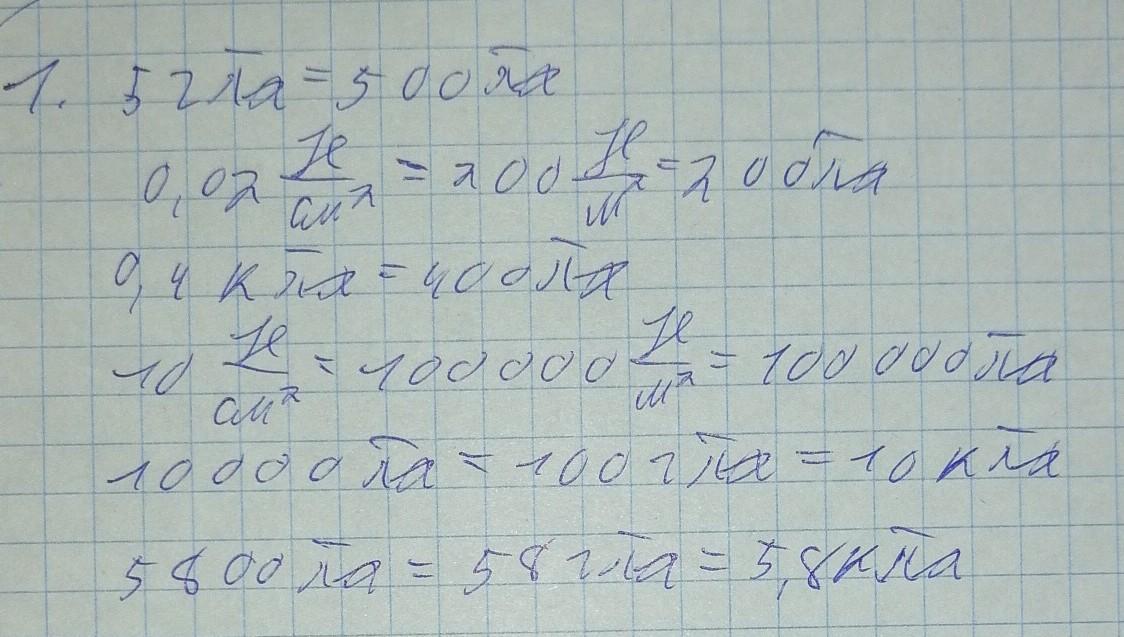 1. 5 гПа = 500 Па
0,02 Н/см² = 200 Н/м² = 200 Па
0,4 кПа = 400 Па
10 Н/см² = 100 000 Н/м² = 100 000 Па
10000 Па = 100 гПа = 10 кПа
5800 Па = 58 гПа = 5,8 кПа